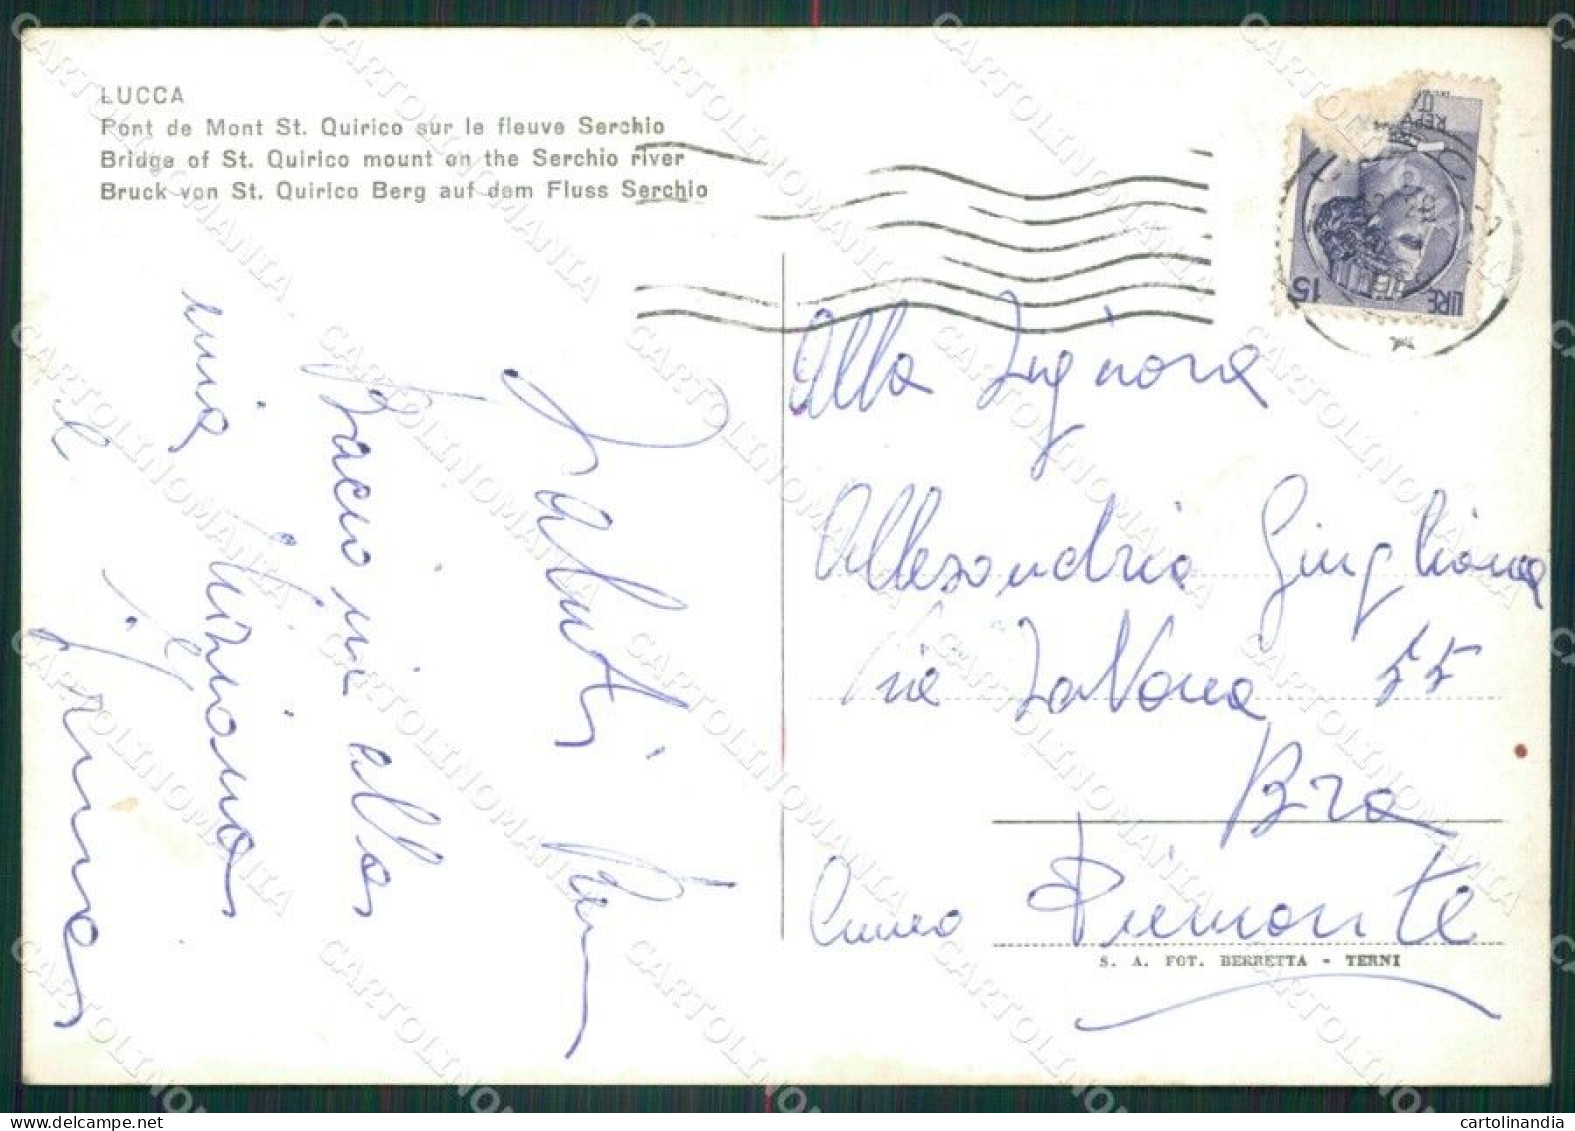 LUCCA
Pont de Mont St. Quirico sur le fleuve Serchio
Bridge of St. Quirico mount on the Serchio river
Bruck von St. Quirico Berg auf dem Fluss Serchio
LIRE 15
Alla Signora
Allesandria Giugliana
Via 55
Bra
Cuneo Piemonte
S. A. FOT. BERRETTA - TERNI
Saluti
alla
mia
CARTOLINOMANIA
cartolinandia